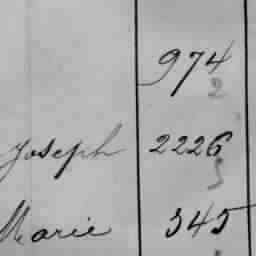 974
2
Joseph 2226
3
Marie 345